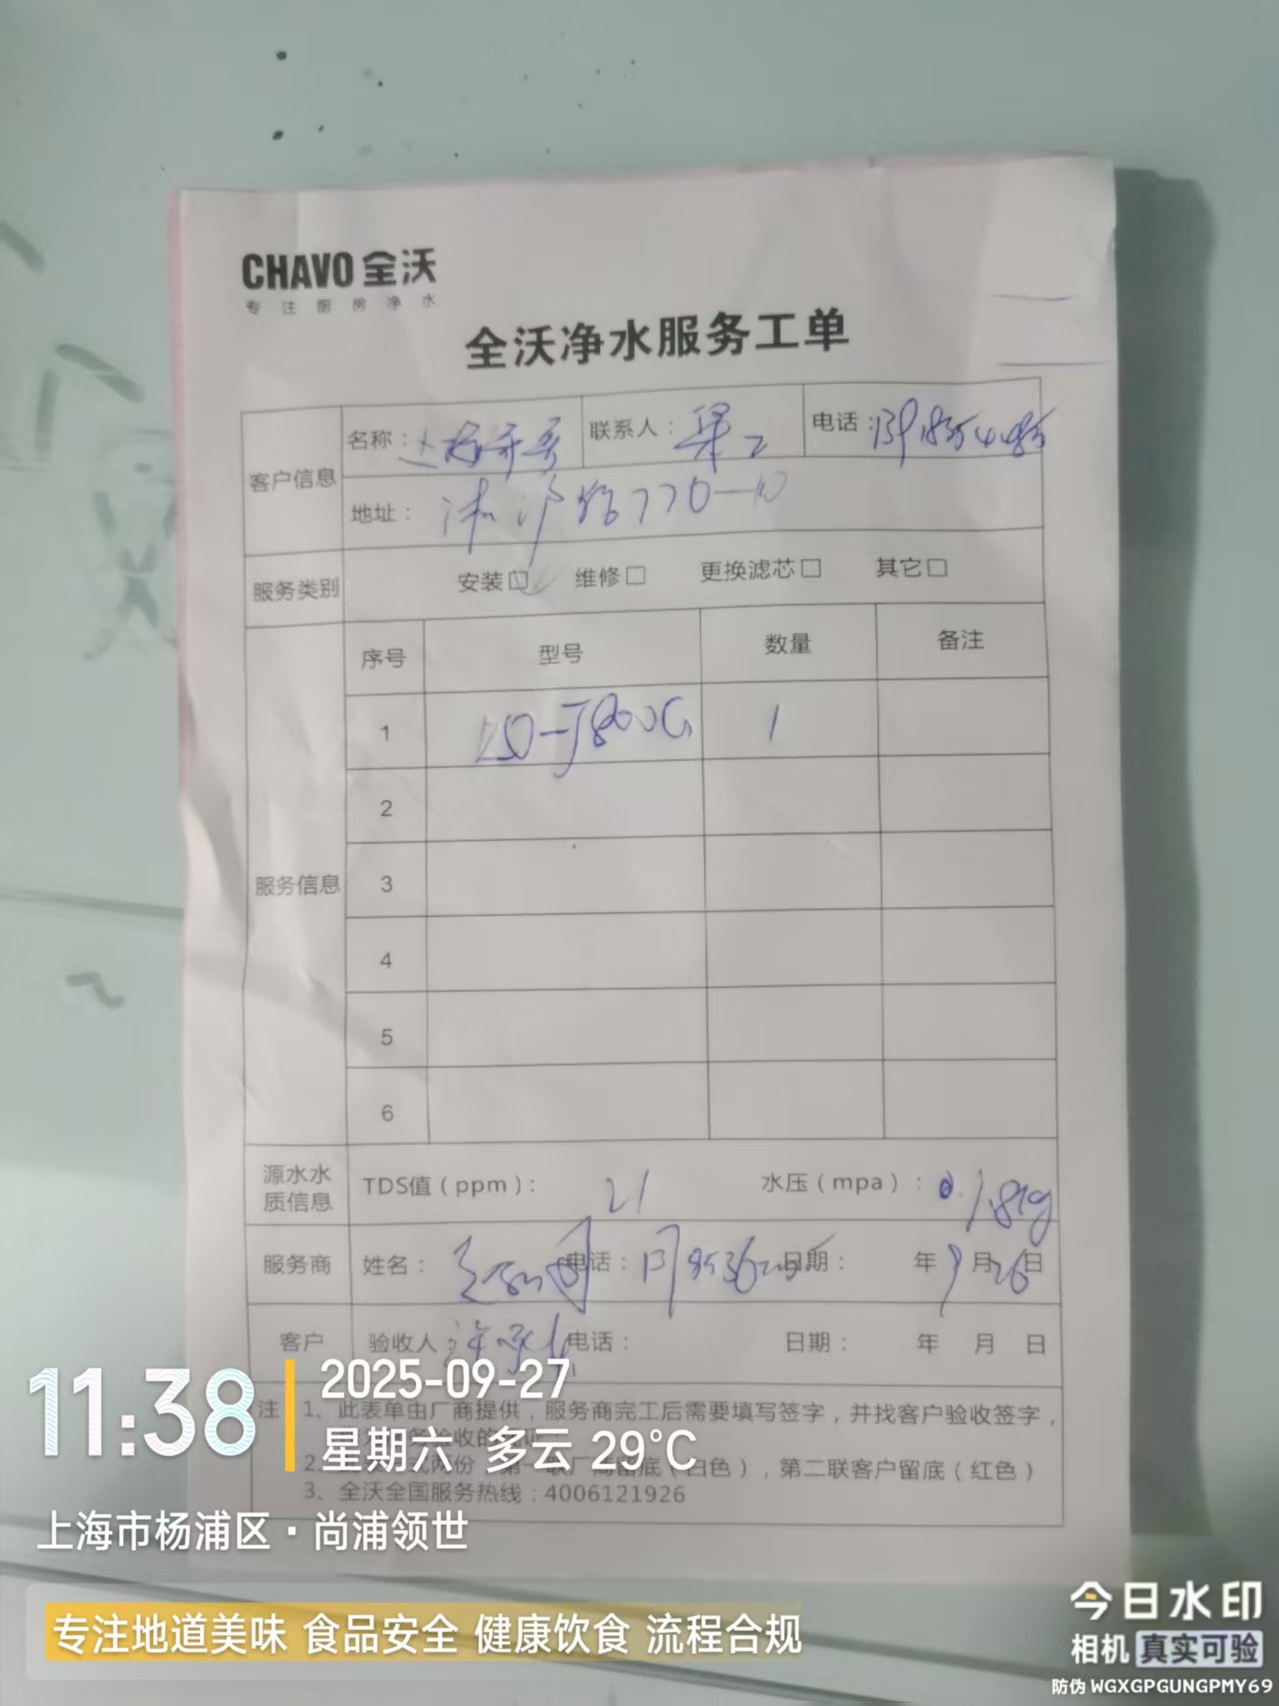 CHAVO 全沃
专注厨房净水
全沃净水服务工单
客户信息 名称： 联系人： 电话：
地址： 路770-10
服务类别 安装☑ 维修□ 更换滤芯□ 其它□
服务信息 序号 型号 数量 备注
1 -J800G 1
2
3
4
5
6
源水水质信息 TDS值（ppm）： 21 水压（mpa）： 0.18
服务商 姓名： 电话： 日期： 年9月26日
客户 验收人： 电话： 日期： 年 月 日
注 1、此表单由厂商提供，服务商完工后需要填写签字，并找客户验收签字，
验收的
2、式两份，第一联厂商留底（白色），第二联客户留底（红色）
3、全沃全国服务热线：4006121926
11:38
2025-09-27
星期六 多云 29°C
上海市杨浦区·尚浦领世
专注地道美味 食品安全 健康饮食 流程合规
今日水印
相机 真实可验
防伪 WGXGPGUNGPMY69